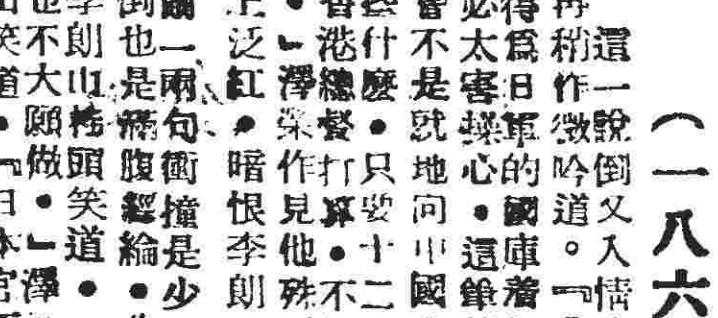 （一八六
這一說倒又入情
再稍作微吟道。『
得爲日軍的國庫着
必太害操心。這錐
會不是就地向中國
些什麼。只要十二
香港總督打算。不
。』澤榮作見他殊
上泛紅。暗恨李朗
一兩句衝撞是少
倒也是滿腹經綸。
李朗山搖頭笑道。
也不大願做。』澤
笑道。『日本官